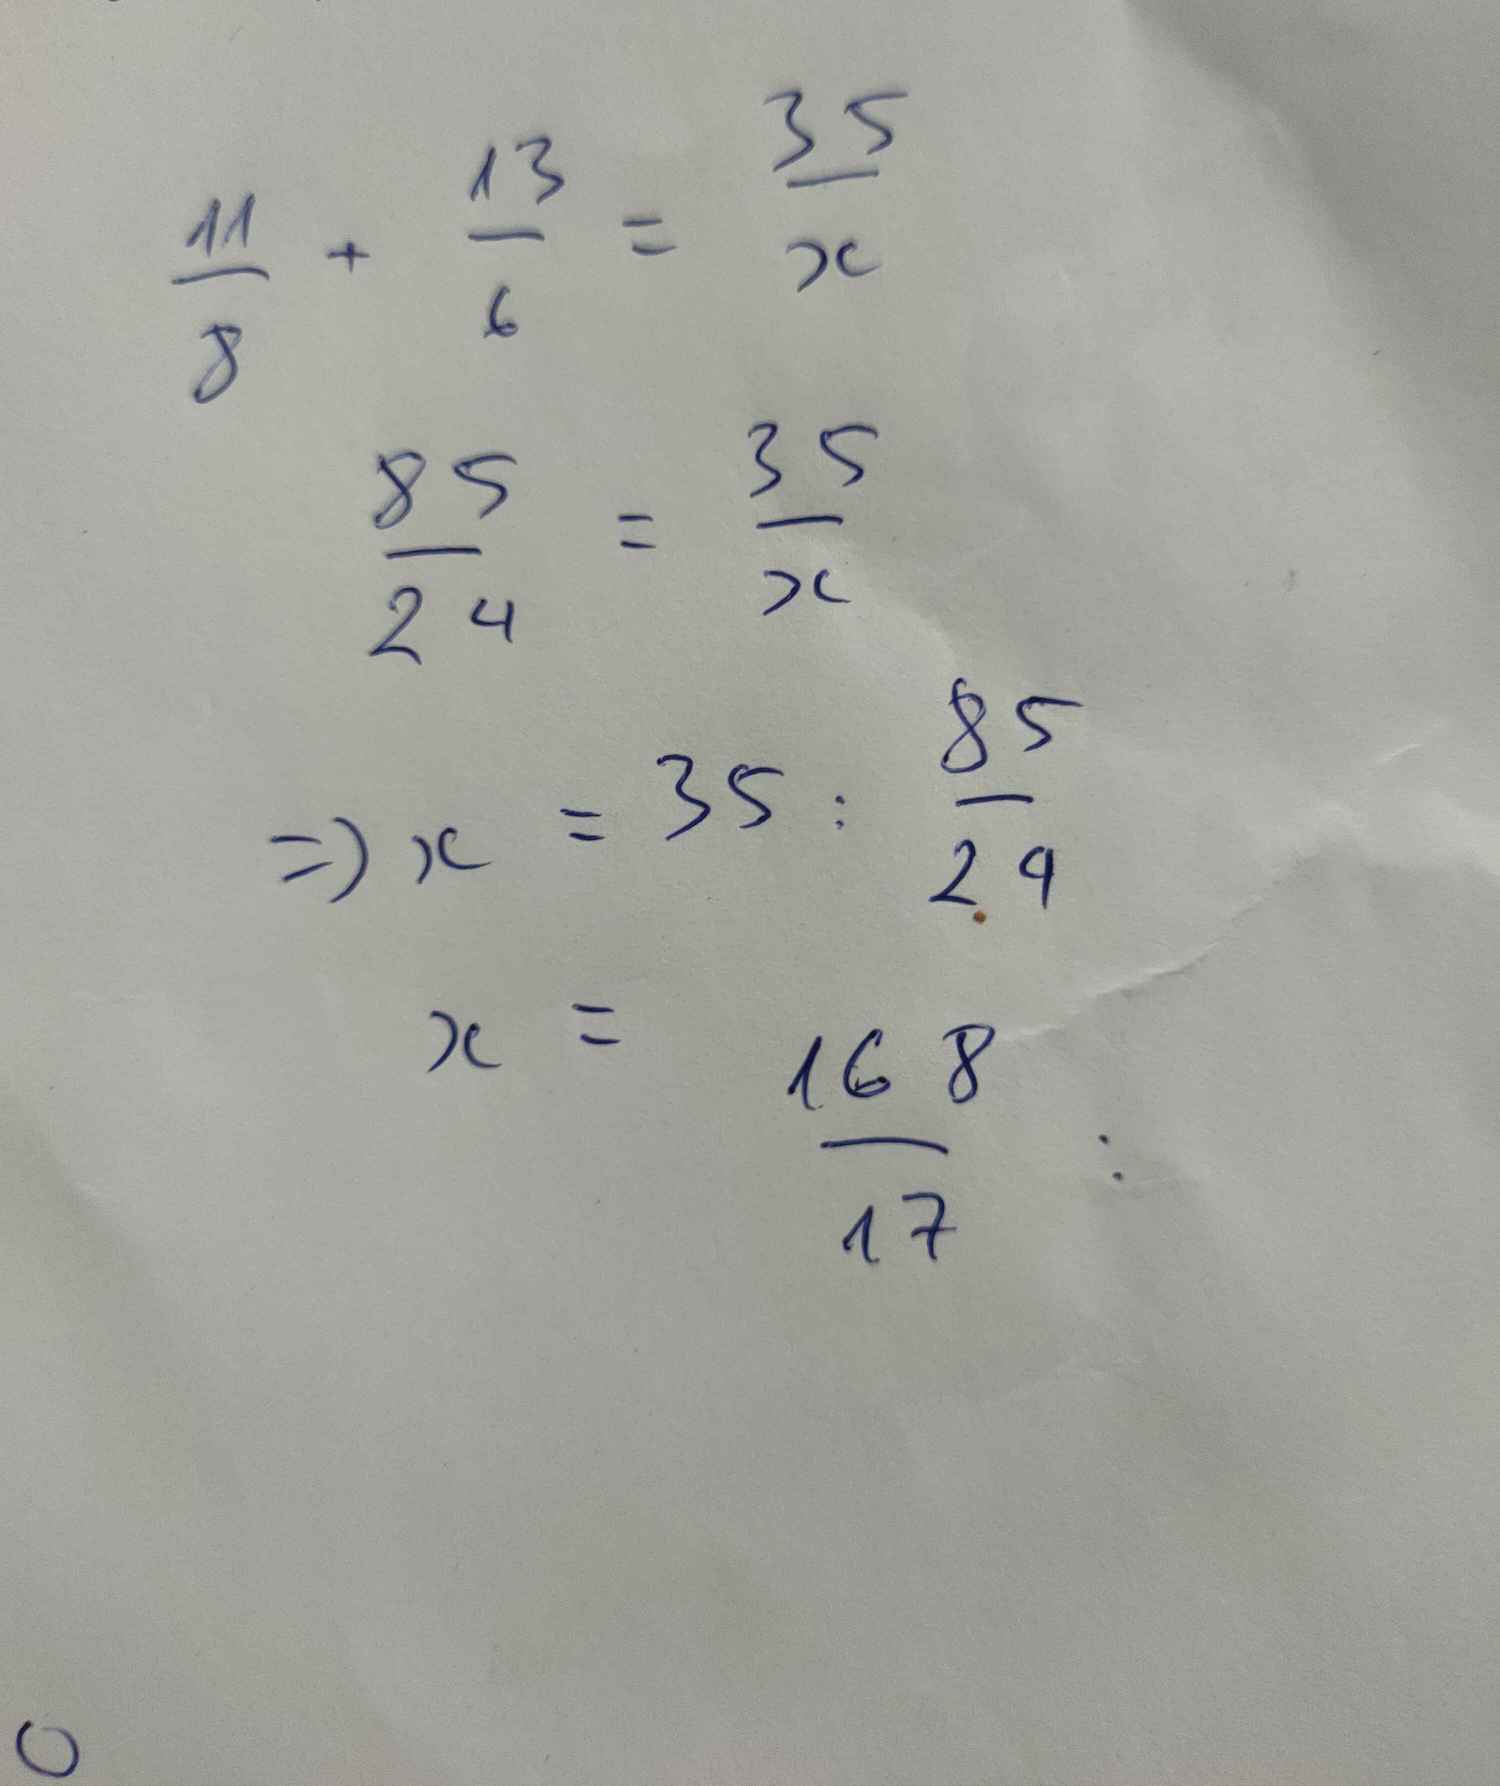 11/8 + 13/6 = 35/x
85/24 = 35/x
=> x = 35 : 85/24
x = 168/17 :
0